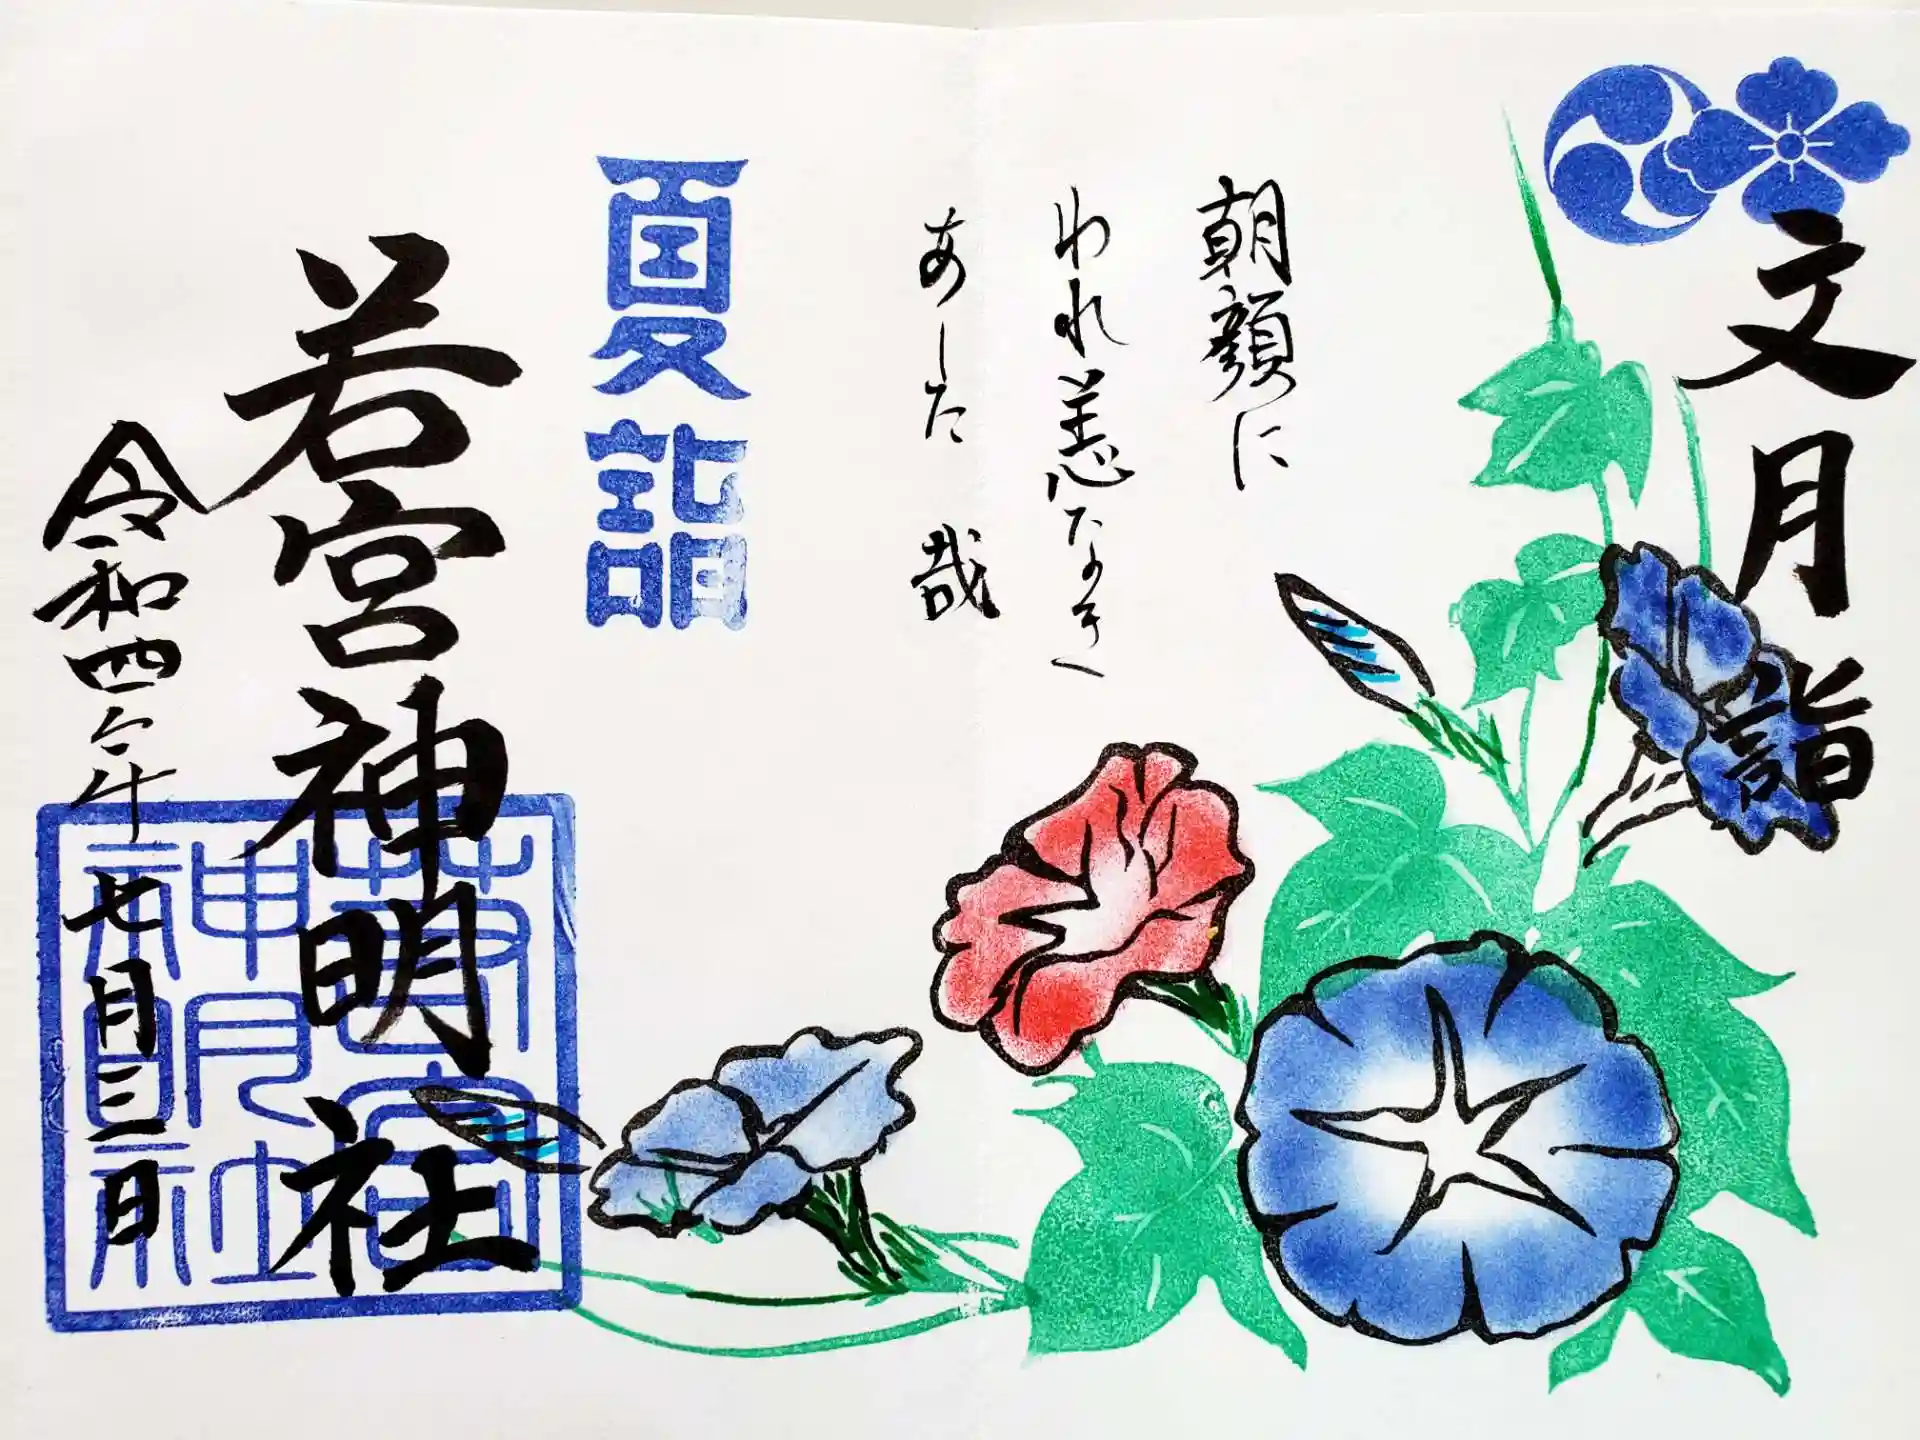 文月詣
朝顔に
われ恙なき
あした哉
夏詣
若宮神明社
令和四年七月三日
若宮神明社